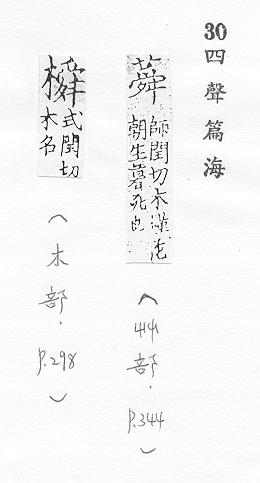 30四聲篇海
蕣
師閏切木堇花
朝生暮死也
(艸部．
P.344)
橓
式閏切
木名
(木部．
P.298)